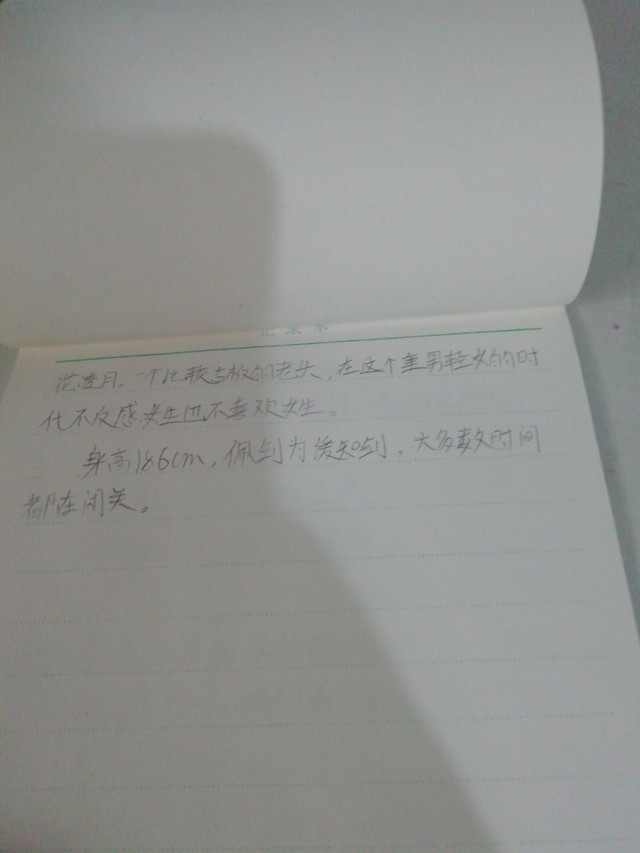 记录本
一个比较古板的老头，在这个重男轻女的时
代不反感女生也不喜欢女生。
身高186cm，佩剑为 剑，大多数时间
都在闭关。